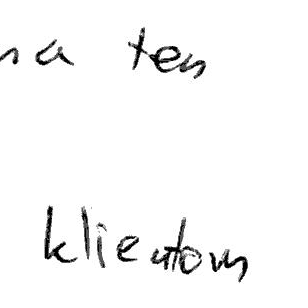 na ten
klientom